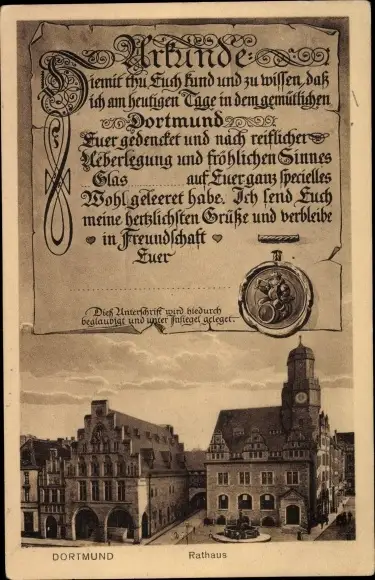 Urkunde:
Hiemit thu Euch kund und zu wissen, daß
ich am heutigen Tage in dem gemütlichen
Dortmund
Euer gedencket und nach reiflicher
Ueberlegung und fröhlichen Sinnes
Glas auf Euer ganz specielles
Wohl geleeret habe. Ich send Euch
meine hertzlichsten Grüße und verbleibe
in Freundschaft
Euer
Dieß Unterschrift wird hiedurch
beglaubigt und unter Insiegel geleget.
DORTMUND Rathaus